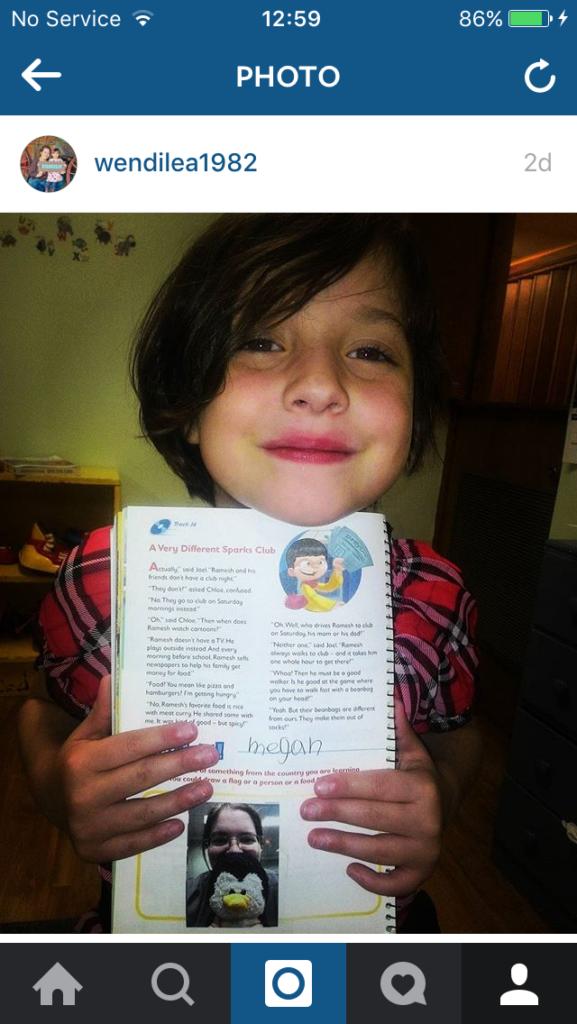 No Service 12:59 86%
PHOTO
wendilea1982 2d
Track 16
A Very Different Sparks Club
Actually," said Joel. "Ramesh and his
friends don't have a club night."
"They don't?" asked Chloe, confused.
"No. They go to club on Saturday
mornings instead."
"Oh," said Chloe. "Then when does
Ramesh watch cartoons?"
"Ramesh doesn't have a TV. He
plays outside instead. And every
morning before school, Ramesh sells
newspapers to help his family get
money for food."
"Food? You mean like pizza and
hamburgers? I'm getting hungry."
"No, Ramesh's favorite food is rice
with meat curry. He shared some with
me. It was kind of good – but spicy!"
"Oh. Well, who drives Ramesh to club
on Saturday, his mom or his dad?"
"Neither one," said Joel. "Ramesh
always walks to club – and it takes him
one whole hour to get there!"
"Whoa! Then he must be a good
walker. Is he good at the game where
you have to walk fast with a beanbag
on your head?"
"Yeah. But their beanbags are different
from ours. They make them out of
socks!"
megan
of something from the country you are learning
You could draw a flag or a person or a food